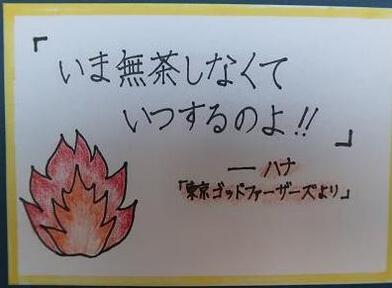 「いま無茶しなくて
いつするのよ!!」
― ハナ
「東京ゴッドファーザーズより」